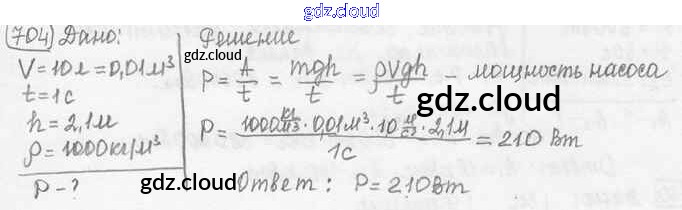 gdz.cloud
704) Дано:
V=10л=0,01м³
t=1c
h=2,1м
ρ=1000кг/м³
P-?
Решение
P = A/t = mgh/t = ρVgh/t - мощность насоса
gdz.cloud
P = 1000 кг/м³ · 0,01м³ · 10 м/с² · 2,1м / 1c = 210 Вт
gdz.cloud
Ответ: P=210Вт
gdz.cloud